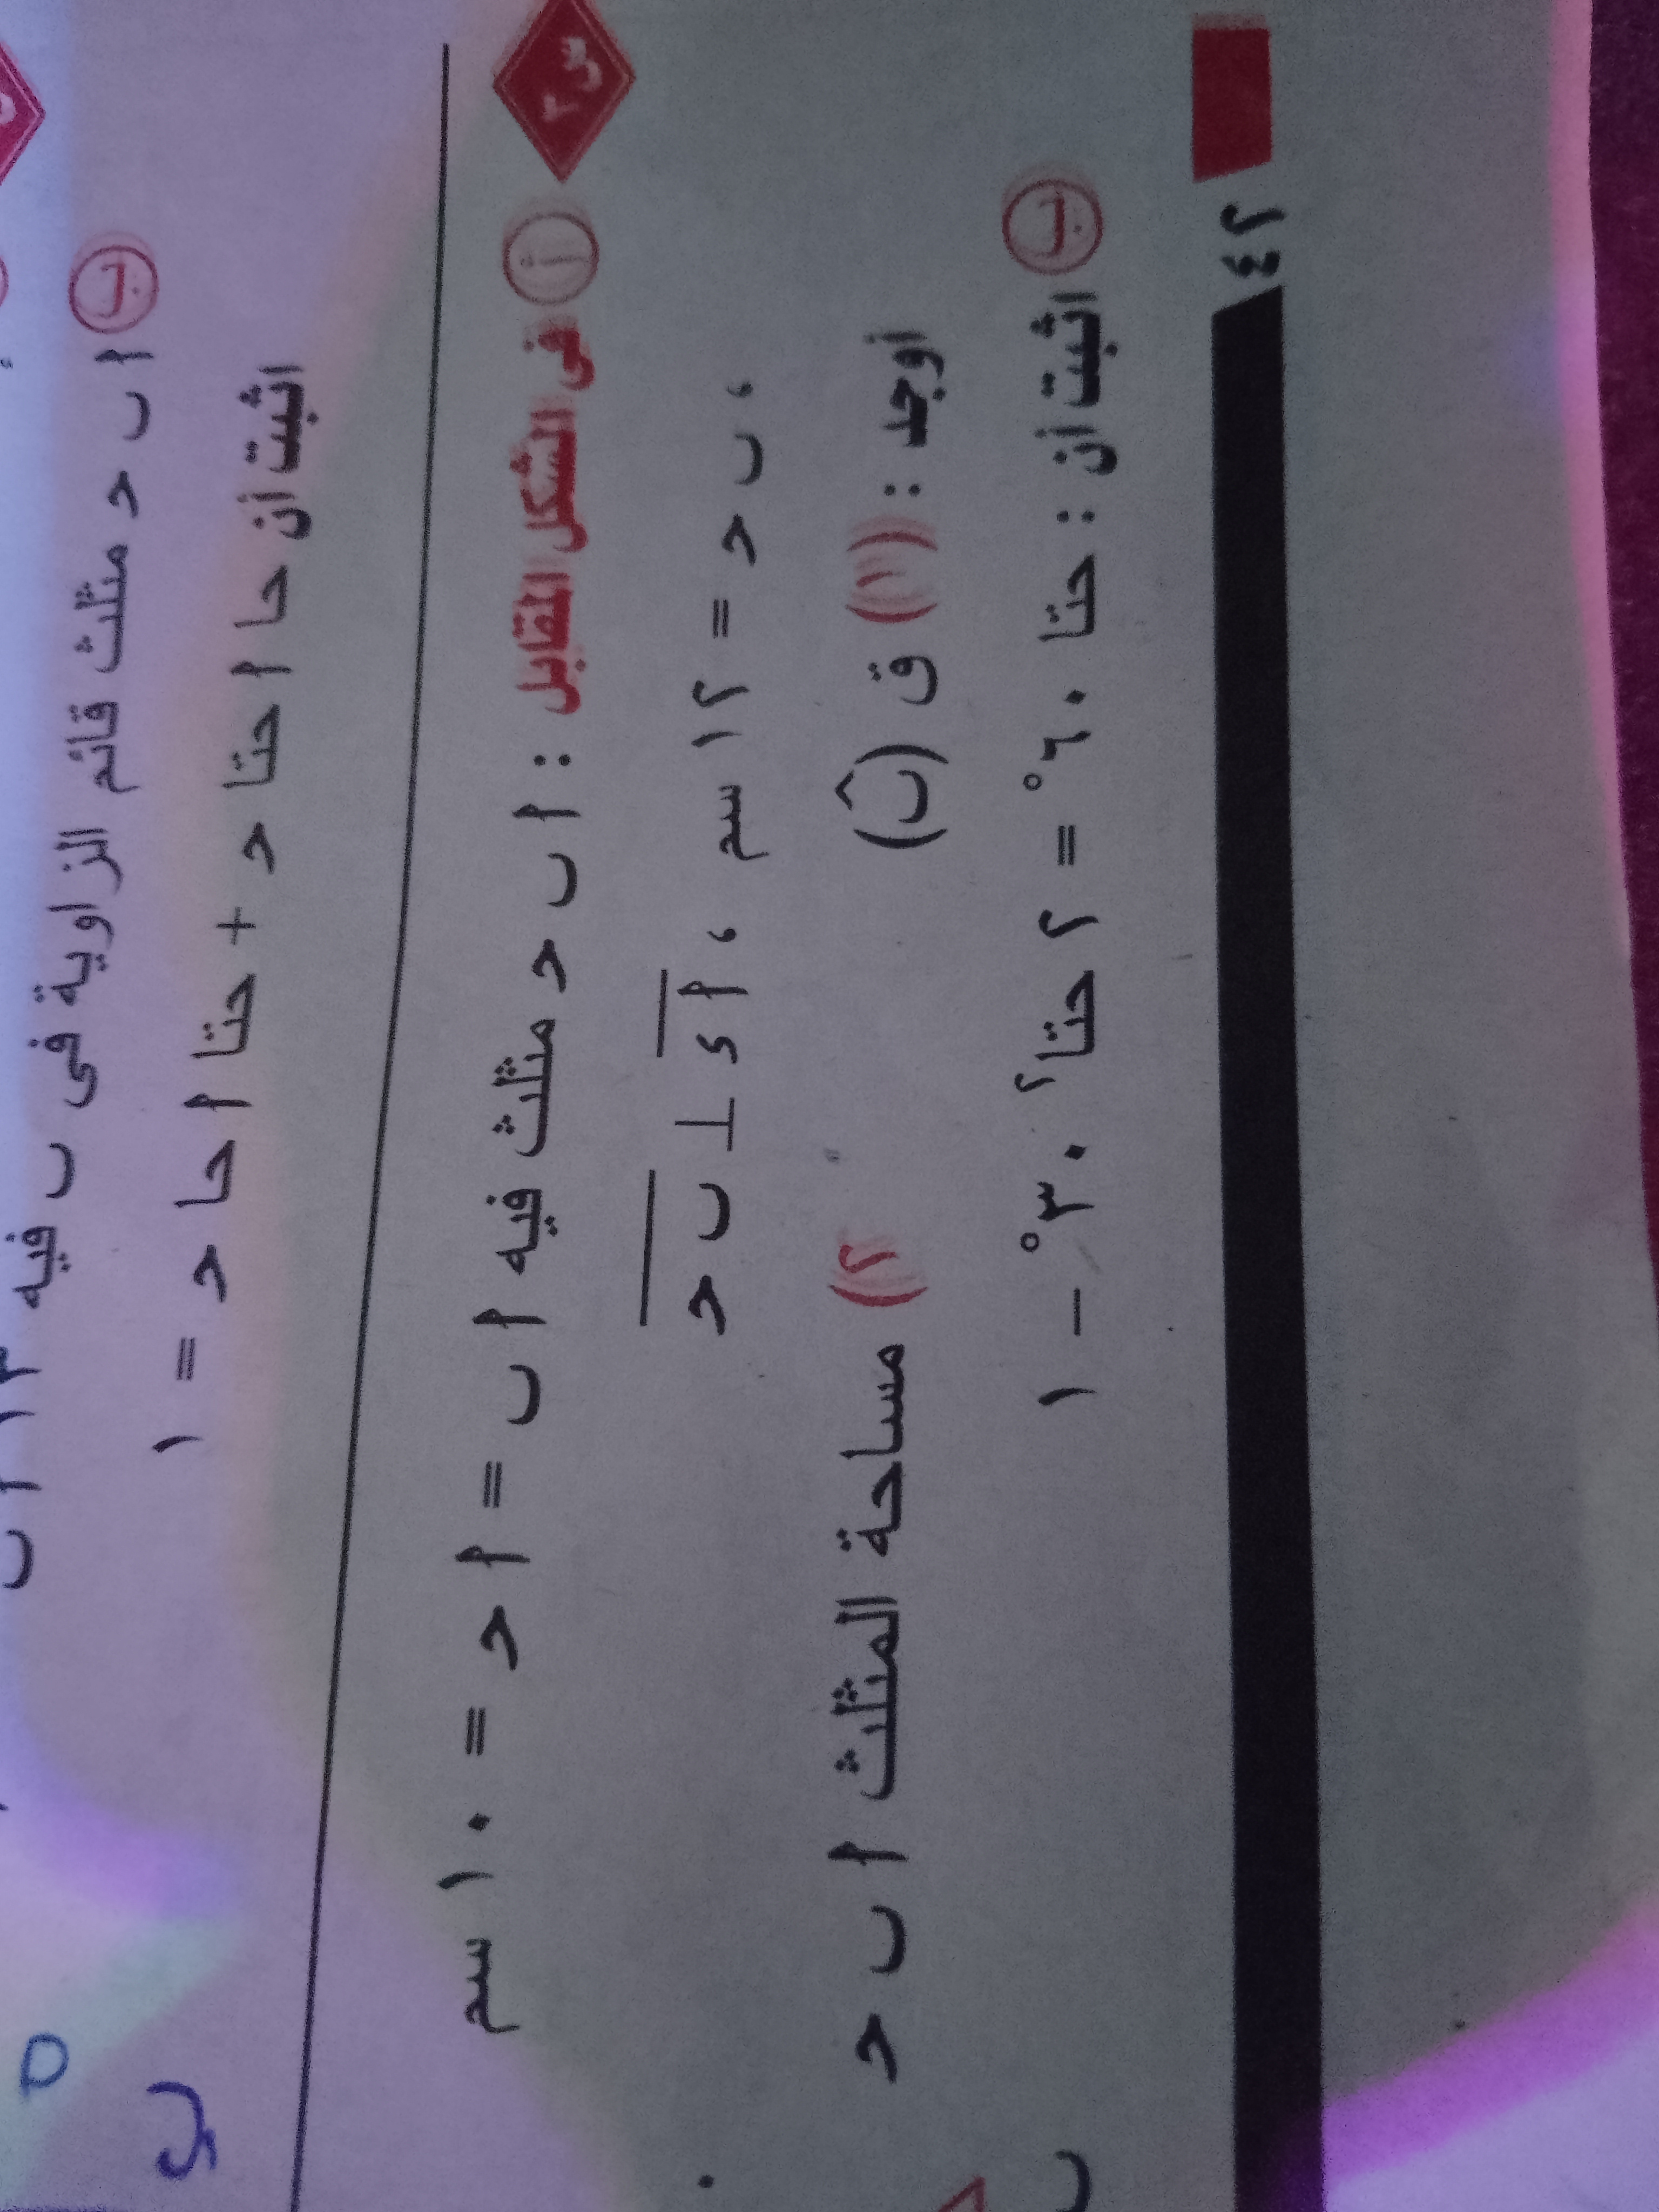 ب ا ب حـ مثلث قائم الزاوية فى ب فيه
اثبت أن حا ا حتا حـ + حتا ا حا حـ = ١
س٣ أ فى الشكل المقابل : ا ب حـ مثلث فيه ا ب = ا حـ = ١٠ سم
، ب حـ = ١٢ سم ، ا د ⊥ ب حـ
أوجد : (١) ق (ب̂) (٢) مساحة المثلث ا ب حـ
ب اثبت أن : حتا ٦٠° = ٢ حتا٢ ٣٠° − ١
٢٤